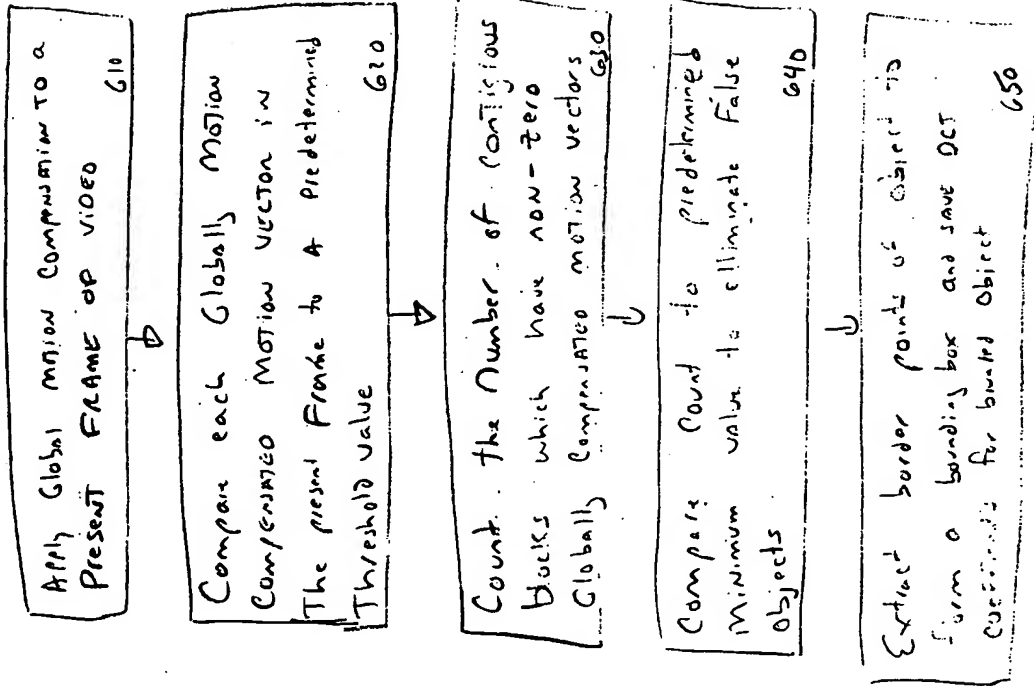 Apply Global Motion Compensation To a
Present FRAME OF VIDEO
610
Compare each Globally Motion
Compensated Motion Vector in
The present Frame to A Predetermined
Threshold value
620
Count. the Number of Contigious
blocks which have non-zero
Globally Compensated motion vectors
630
Compare Count to predetermined
Minimium value to elliminate False
Objects
640
Extract border points of object to
form a bounding box and save DCT
for object
650